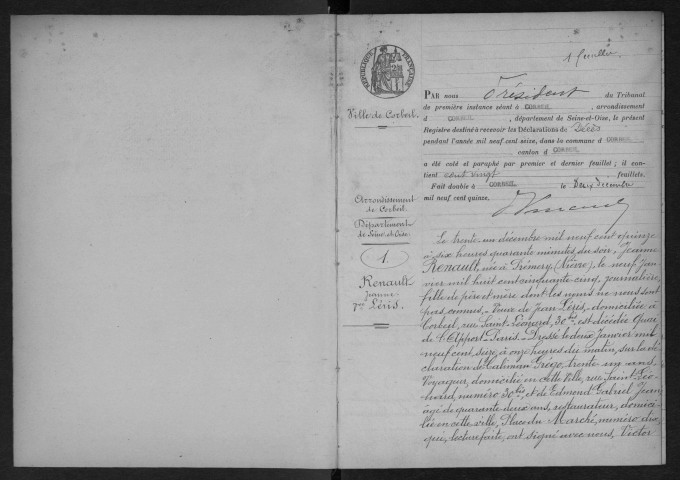 1er feuillet
RÉPUBLIQUE FRANÇAISE
PAR nous Président du Tribunal
de première instance séant à CORBEIL, arrondissement
d CORBEIL, département de Seine-et-Oise, le présent
Registre destiné à recevoir les Déclarations de Décès
pendant l'année mil neuf cent seize, dans la commune d CORBEIL
canton d CORBEIL
a été coté et paraphé par premier et dernier feuillet; il con-
tient cent vingt feuillets.
Fait double à CORBEIL le Deux décembre
mil neuf cent quinze.
Ville de Corbeil.
Arrondissement
de Corbeil.
Département
de Seine-et-Oise
1
Renault
Jeanne
Vve Léris.
Le trente-un décembre mil neuf cent quinze
à six heures quarante minutes du soir, Jeanne
Renault, née à Prémery (Nièvre), le neuf jan
vier mil huit cent cinquante cinq, journalière,
fille de père et mère dont les noms ne nous sont
pas connus. Veuve de Jean Léris, domiciliée à
Corbeil, rue Saint-Léonard, 30 bis, est décédée Quai
de l'Apport-Paris. Dressé le deux Janvier mil
neuf cent seize, à onze heures du matin, sur la dé
claration de Grégo, trente un ans,
Voyageur, domicilié en cette Ville, rue Saint-Léo
nard, numéro 30 bis, et de Edmond Gabriel Jean
âgé de quarante deux ans, restaurateur, domici
lié en cette ville, Place du Marché, numéro dix
qui, lecture faite, ont signé avec nous, Victor